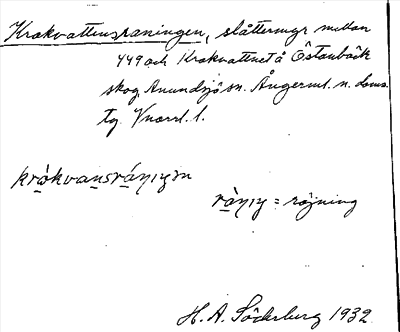 Krokvattensraningen, slåttermyr mellan
449 och Krokvattnet å Östanbäck
skog, Anundsjö sn. Ångerml. n. doms.
tg. V.norrl. l.
kròkvansràniŋɯn
ràniŋ = röjning
H. A. Söderberg 1932